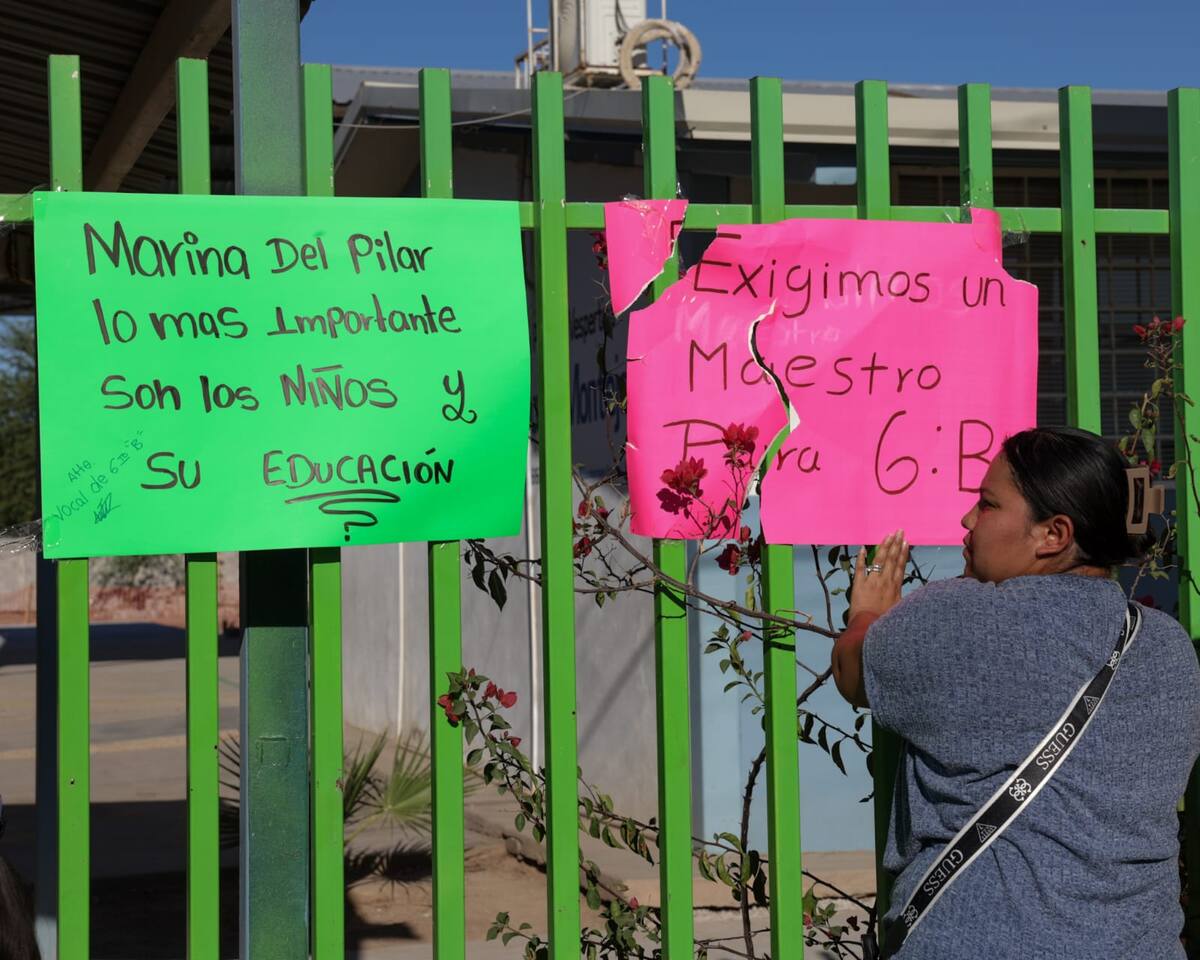 Marina Del Pilar
lo mas Importante
Son los NIÑOS y
SU EDUCACIÓN
Atte
Vocal de 6 "B"
Exigimos un
Maestro
Para 6:B
GUESS
GUESS